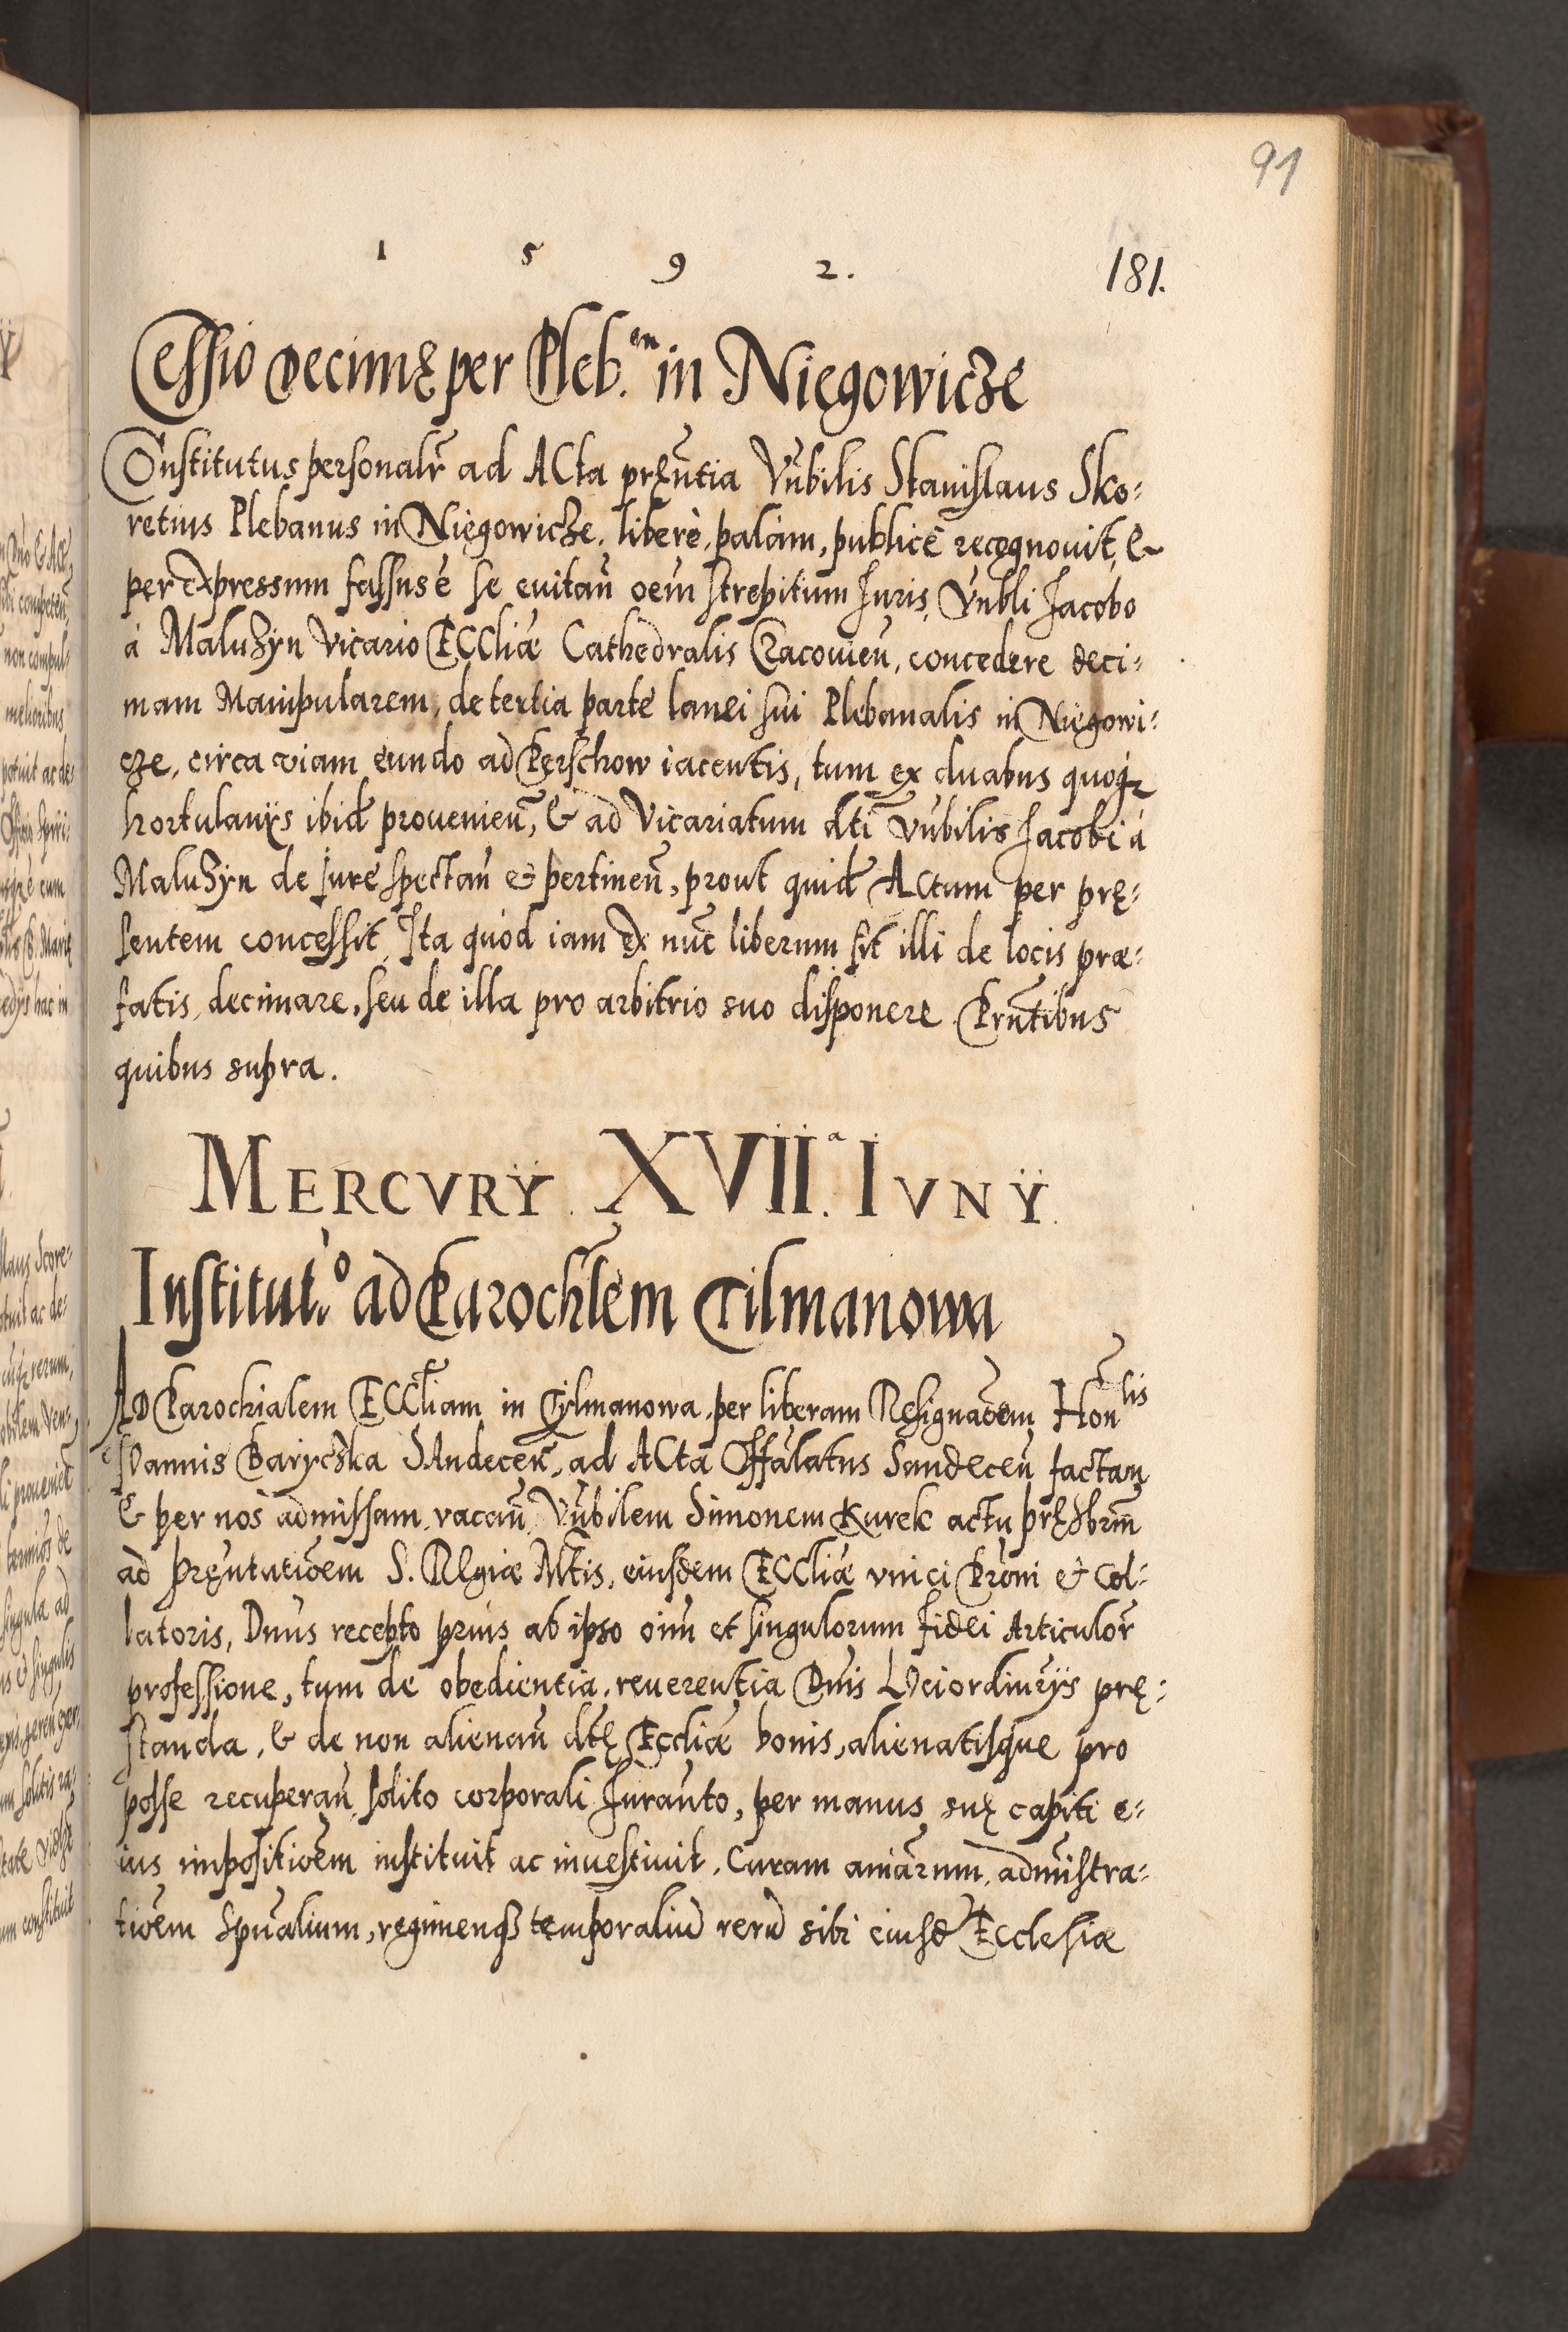 91
1 5 9 2.
181.
Cessio decimę per Pleb.en in Niegowicze
Constitutus personalr̃ ad ACta pręñtia Vñbilis Stanislaus Sko:
retius Plebanus in Niegowicze, liberè, palàm, publicè recognouit, &
per expressum fassus é se euitañ oem̃ strepitum Juris, Vñbli Jacobo
á Maluzÿn Vicario ECCliæ Cathedralis Cracouieñ, concedere deci:
mam Manipularem, de tertia parte lanei sui Plebanalis in Niegowi:
cze, circa viam eundo ad Pęrschow iacentis, tum ex duabus quoqȝ
hortulanÿs ibid̃ prouenieñ, & ad Vicariatum dti Vñbilis Jacobi á
Maluzÿn de Jure spectañ & pertineñ, prout quid̃ ACtum per prę:
sentem concessit, Ita quòd iam ex nũc liberum sit illi de locis præ:
fatis, decimare, seu de illa pro arbitrio suo disponere. Prñtibus
quibus supra.
MERCVRŸ. XVII.a IVNŸ.
Institut.o ad Parochlem Tilmanowa
AD Parochialem ECCliam in Tÿlmanowa, per liberam Resignaõem Honlis
Joannis Baryczka SAndeceñ, ad ACta Offalatus Sandeceñ factam
& per nos admissam, vacañ, Vñbilem Simonem Kurek actu pręsbrm̃
ad pręñtatioẽm S. REgiæ Mtis, eiusdem ECCliæ vnici Prõni & Col:
latoris, Dnus recepto prius ab ipso oim̃ et singulorum fidei Articulor̃
professione, tum de obedientia, reuerentia Dnis Lociordinrÿs prę:
standa, & de non alienañ dtę Eccliæ bonis, alienatisque pro
posse recuperañ, solito corporali Jurañto, per manus suę capiti e:
ius impositioẽm instituit ac inuestiuit, Curam aniarum, admistra:
tioẽm Spũalium, regimenqȝ temporaliũ rerũ sibi eiusd̃ Ecclesiæ